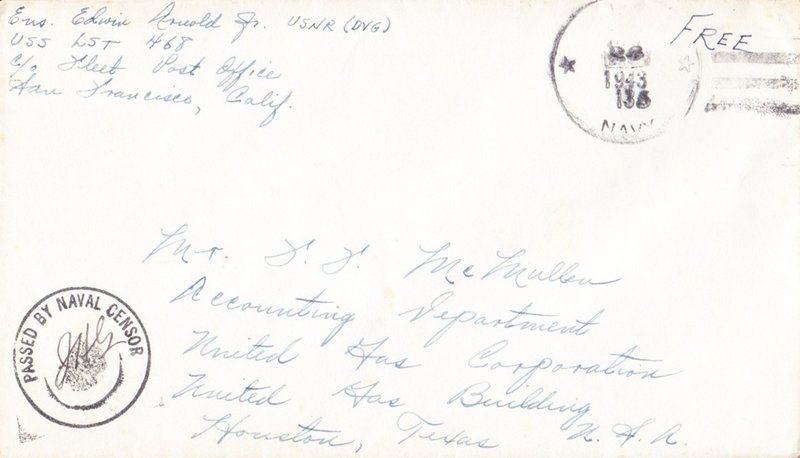 Ens. Edwin Arnold Jr. USNR (DVG)
USS LST 468
c/o Fleet Post Office
San Francisco, Calif.
FREE
1943
NAVY
Mr. McMullen
Accounting Department
United Gas Corporation
United Gas Building
Houston, Texas U.S.A.
PASSED BY NAVAL CENSOR